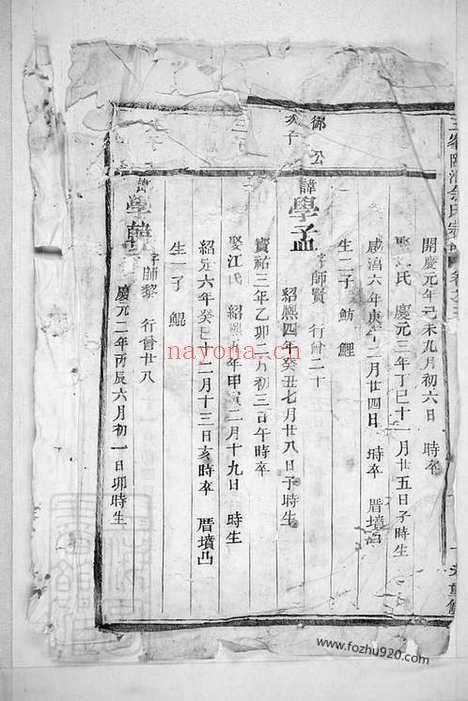 開慶元年己未九月初六日 時卒
娶 氏 慶元三年丁巳十一月廿五日子時生
咸淳六年庚午二月廿四日 時卒 厝墳凸
生二子 魴 鯉
御公次子
諱學孟 字師賢 行曾二十
紹熙四年癸丑七月廿八日子時生
寶祐三年乙卯二月初三日午時卒
娶江氏 紹熙五年甲寅二月十九日 時生
紹定六年癸巳十二月十三日亥時卒 厝墳凸
生一子 鯤
諱學 字師黎 行曾廿八
慶元二年丙辰六月初一日卯時生
nayona.cn
www.fozhu920.com